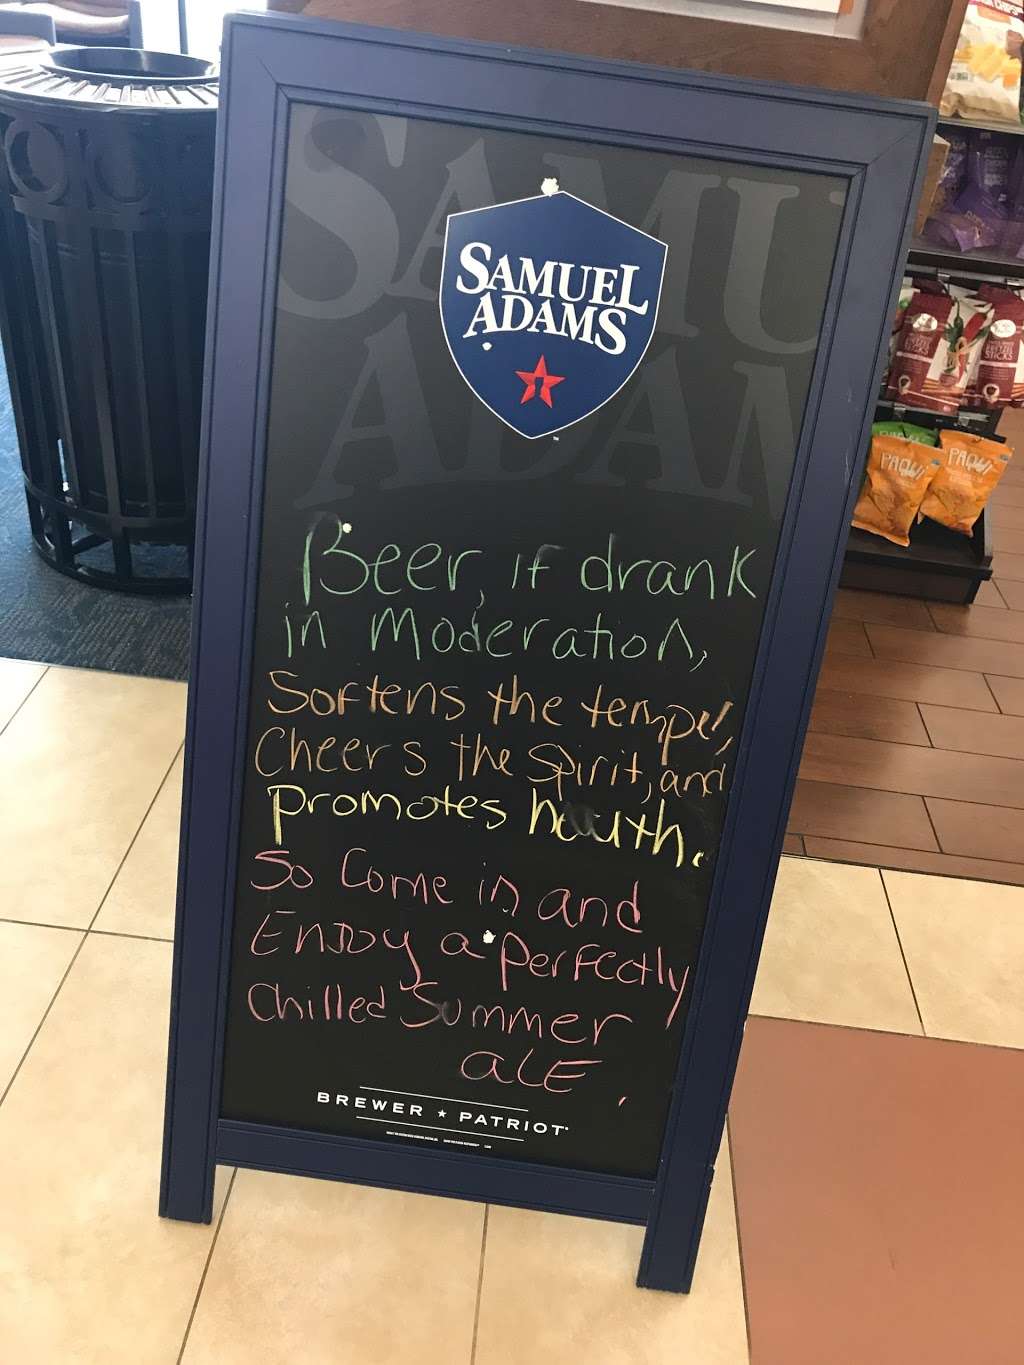 SAMU
ADAM
SAMUEL
ADAMS
Beer, if drank
in Moderation,
Softens the temper,
Cheers the Spirit, and
promotes heauth.
So Come in and
Enjoy a perfectly
Chilled Summer
ALE.
BREWER ★ PATRIOT
PAQUI
PAQUI
STICKS